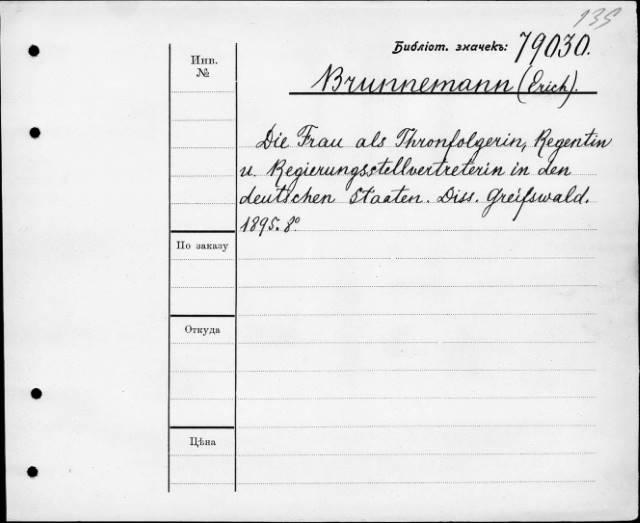 135
Библіот. значекъ: 79030.
Инв.
№
Brunnemann (Erich).
Die Frau als Thronfolgerin, Regentin
u. Regierungsstellvertreterin in den
deutschen Staaten. Diss. Greifswald.
1895. 8º
По заказу
Откуда
Цѣна